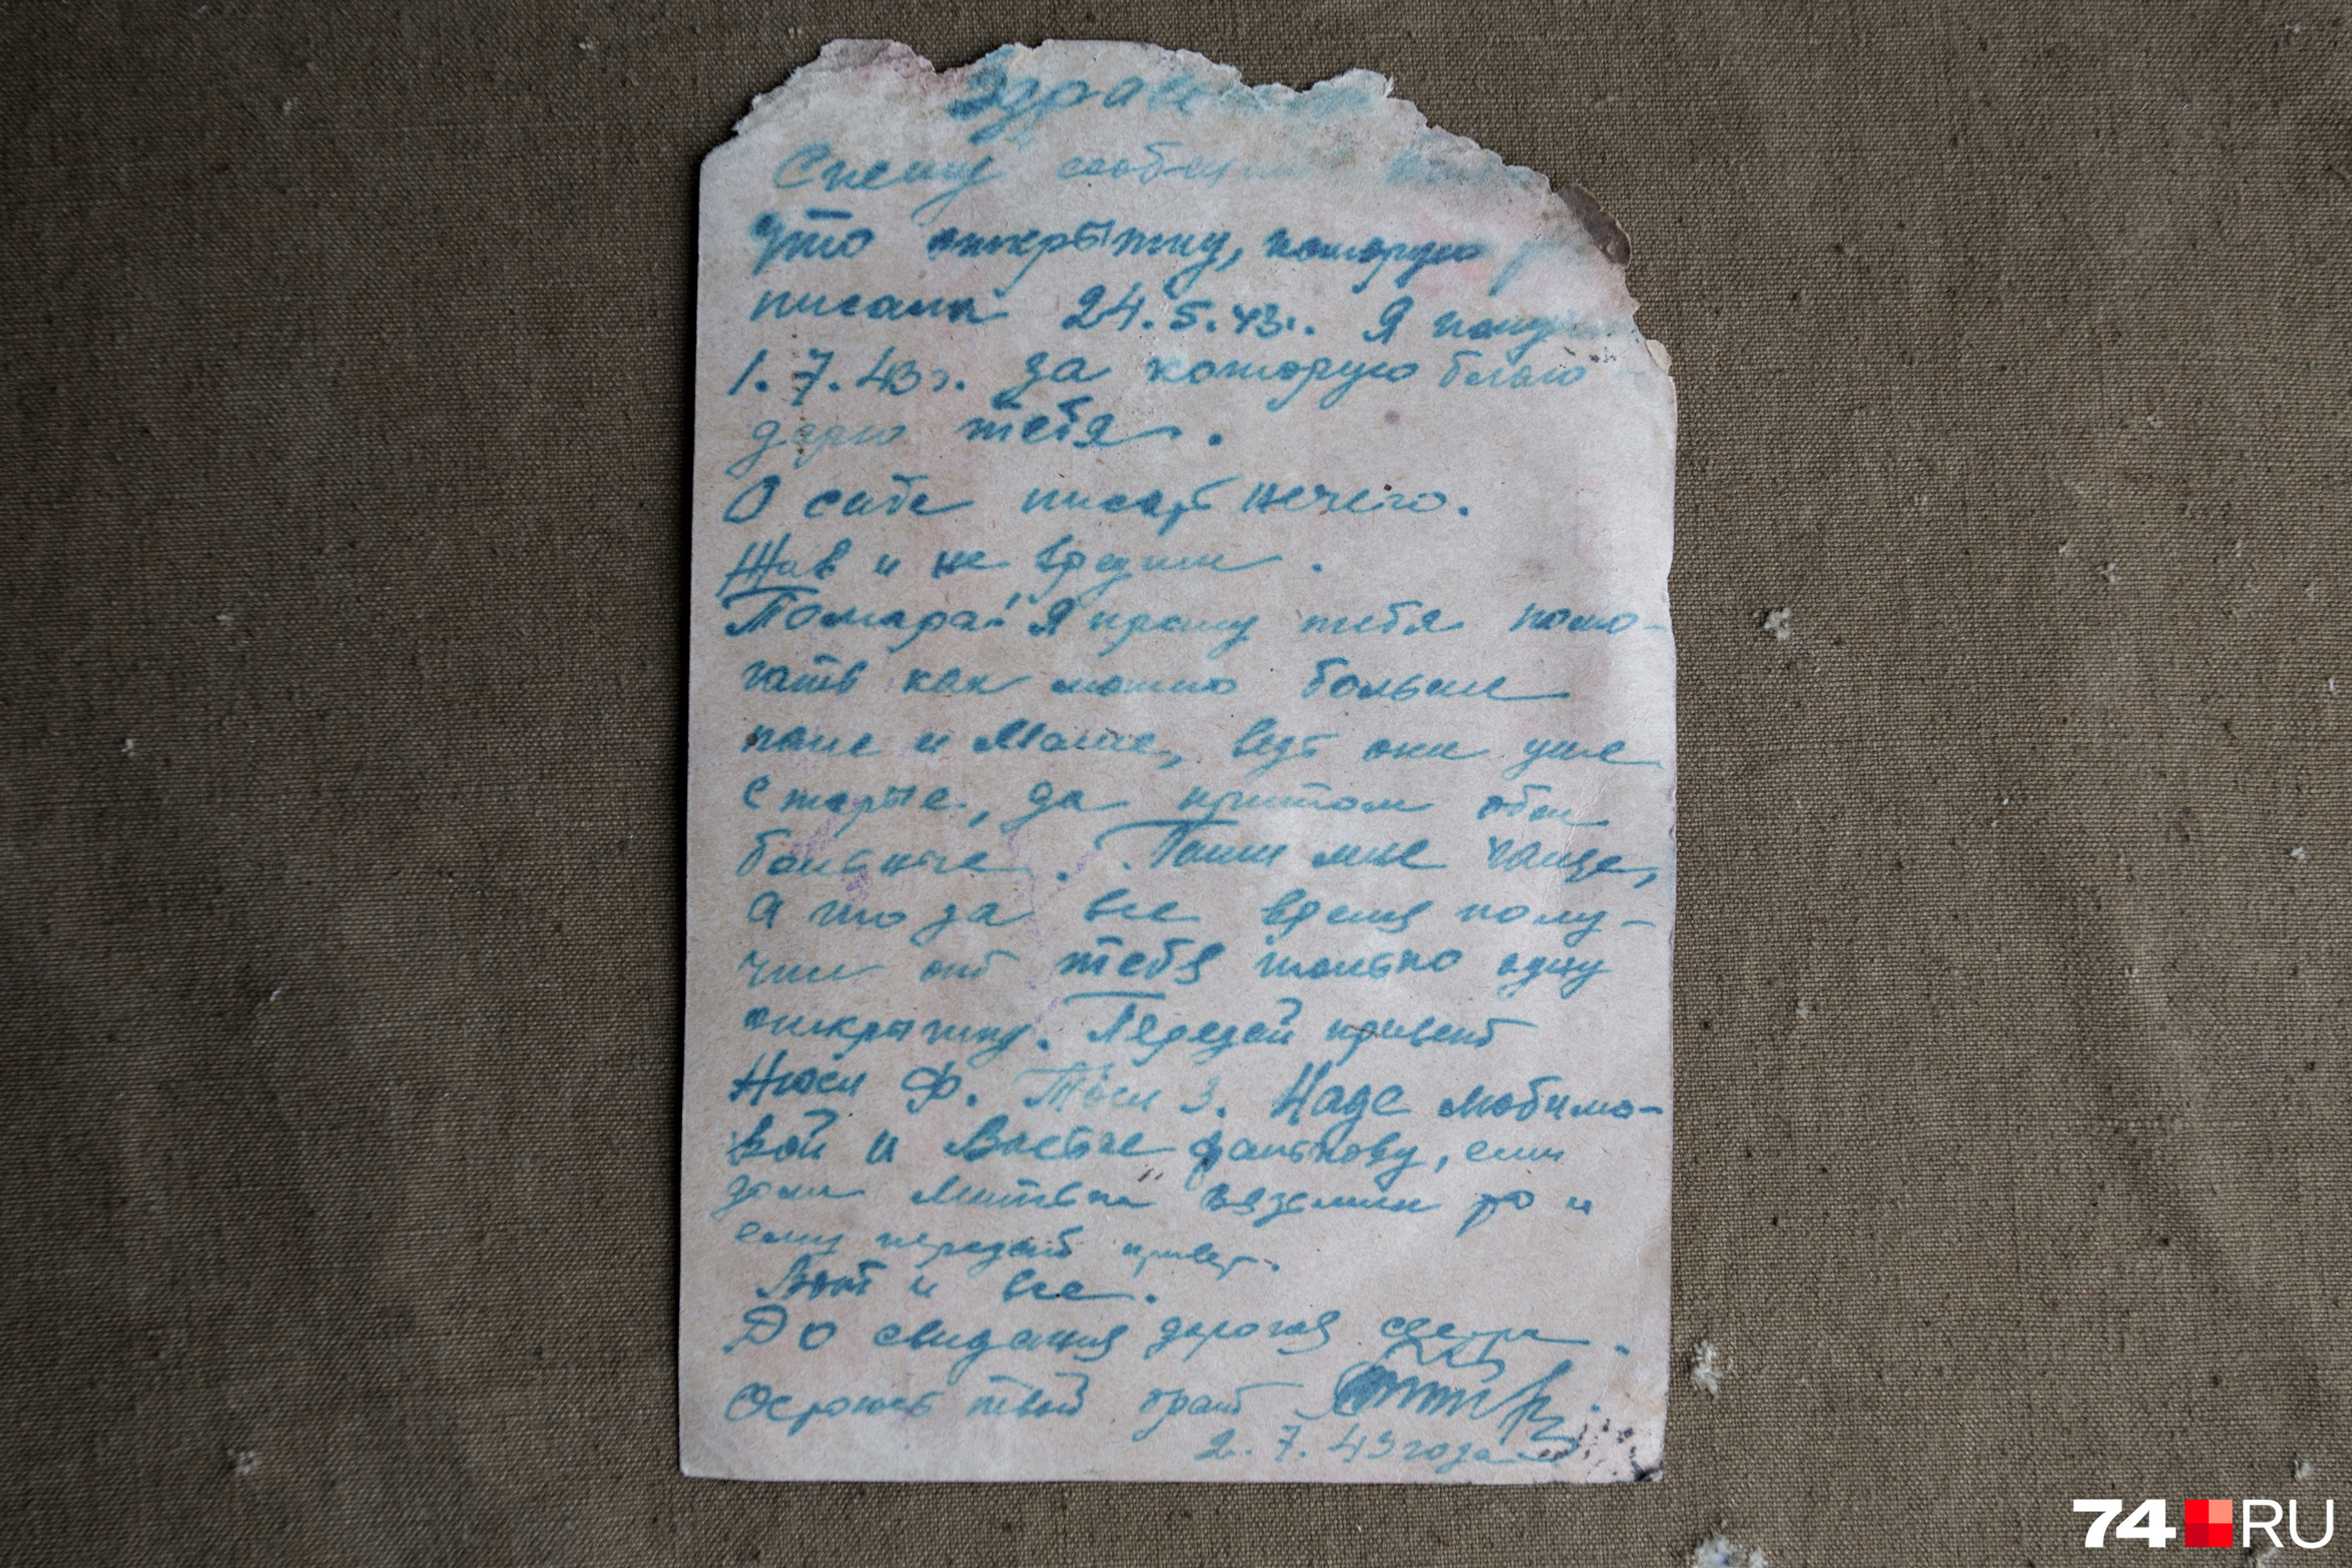 Здрав
Спешу сообщить
Что открытку, которую
писала 24.5.43г. Я получ
1.7.43г. за которую благо
дарю тебя.
О себе писат нечего.
Жив и не вредим.
Томара! Я прошу тебя помо-
гать как можно больше
папе и Маме, ведь они уже
старые, да притом обои
больные. Пиши мне чаще,
а то за все время полу-
чил от тебя только одну
открытку. Передай привет
Нюси Ф. Тоси З. Наде Любимо-
вой и Ваське фалькову, если
дома Митька то и
ему передай привет.
Вот и все.
До свидания дорогая сестра.
Остаюсь твой брат
2.7.43 года
74 RU